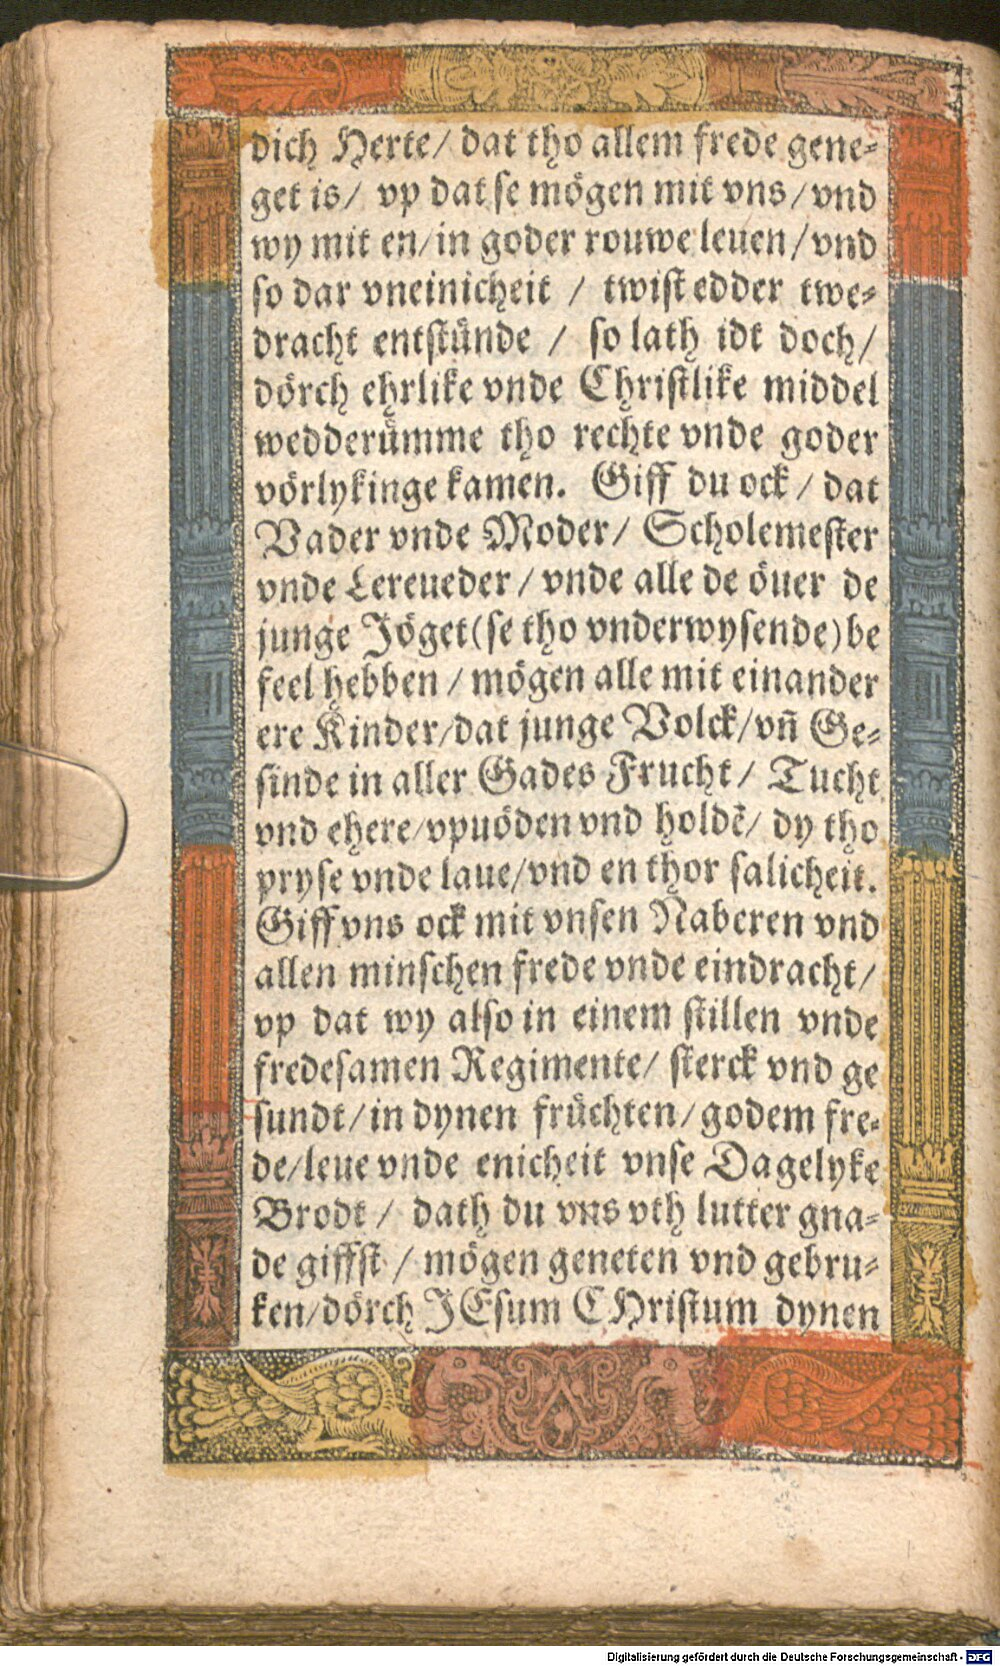 dich Herte/ dat tho allem frede gene⸗
get is/ vp dat se mögen mit vns/vnd
wy mit en/in goder rouwe leuen/vnd
so dar vneinicheit / twist edder twe⸗
dracht entstünde / so lath idt doch/
dörch ehrlike vnde Christlike middel
wedderümme tho rechte vnde goder
vörlykinge kamen. Giff du ock / dat
Vader vnde Moder/ Scholemester
vnde Lereueder/vnde alle de öuer de
junge Jöget(se tho vnderwysende)be
feel hebben / mögen alle mit einander
ere Kinder/dat junge Volck/vn̄ Ge⸗
sinde in aller Gades Frucht/ Tucht
vnd ehere/vpuöden vnd holdē/ dy tho
pryse vnde laue/vnd en thor salicheit.
Giff vns ock mit vnsen Naberen vnd
allen minschen frede vnde eindracht/
vp dat wy also in einem stillen vnde
fredesamen Regimente/ sterck vnd ge
sundt/in dynen früchten/godem fre⸗
de/leue vnde enicheit vnse Dagelyke
Brodt / dath du vns vth lutter gna⸗
de giffst / mögen geneten vnd gebru⸗
ken/dörch JEsum CHristum dynen
Digitalisierung gefördert durch die Deutsche Forschungsgemeinschaft - DFG